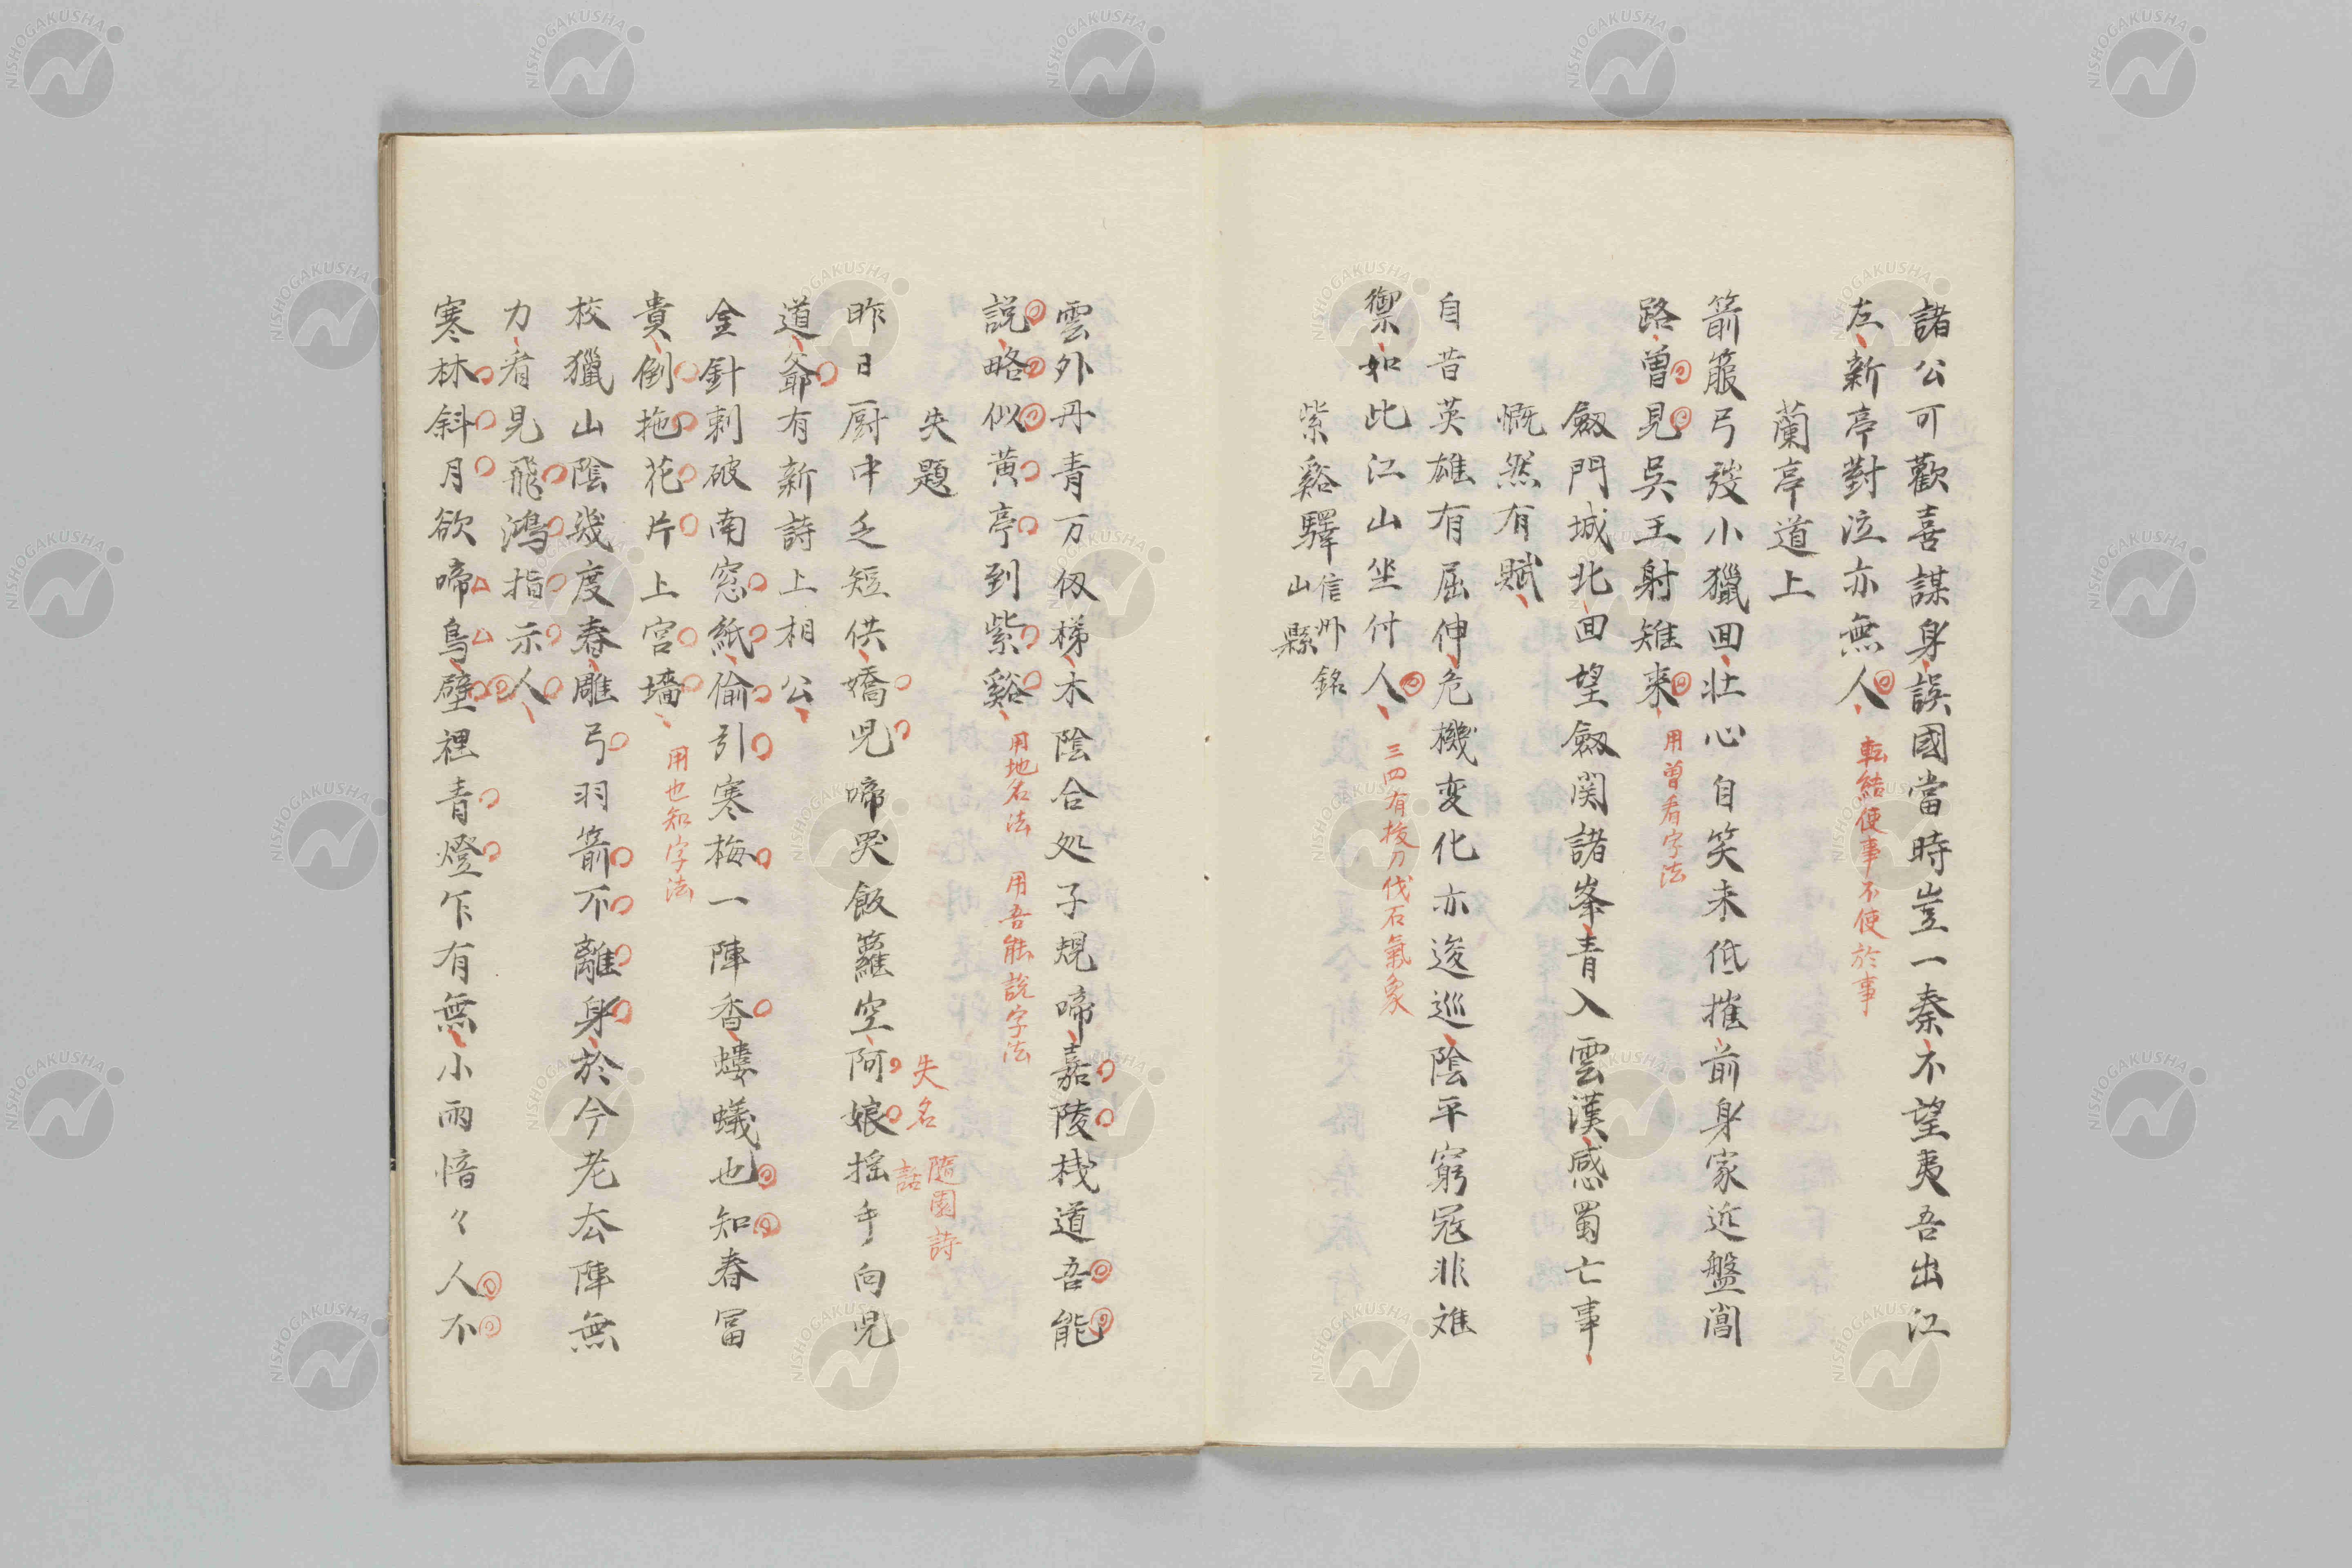 諸公可歡喜謀身誤國當時豈一秦不望夷吾出江
左新亭對泣亦無人
転結使事不使於事
蘭亭道上
箭箙弓弢小獵回壯心自笑未低摧前身家近盤閶
路曽見吳王射雉来
用曽看字法
劔門城北回望劔関諸峯青入雲漢感蜀亡事
慨然有賦
自昔英雄有屈伸危機変化亦逡巡陰平窮冦非難
禦如此江山坐付人
三四有抜刀伐石氣象
紫谿驛
信州銘
山縣
雲外丹青万仭梯木陰合処子規啼嘉陵栈道吾能
説略似黄亭到紫谿
用地名法 用吾能説字法
失題
失名
隨園詩
話
昨日厨中乏短供嬌児啼哭飯籮空阿娘揺手向児
道爺有新詩上相公
金針刺破南窓紙偷引寒梅一陣香螻蟻也知春冨
貴倒拖花片上宮墻
用也知字法
校獵山陰幾度春雕弓羽箭不離身於今老厺陣無
力看見飛鴻指示人
寒林斜月欲啼鳥壁裡青燈乍有無小雨愔々人不
NISHOGAKUSHA